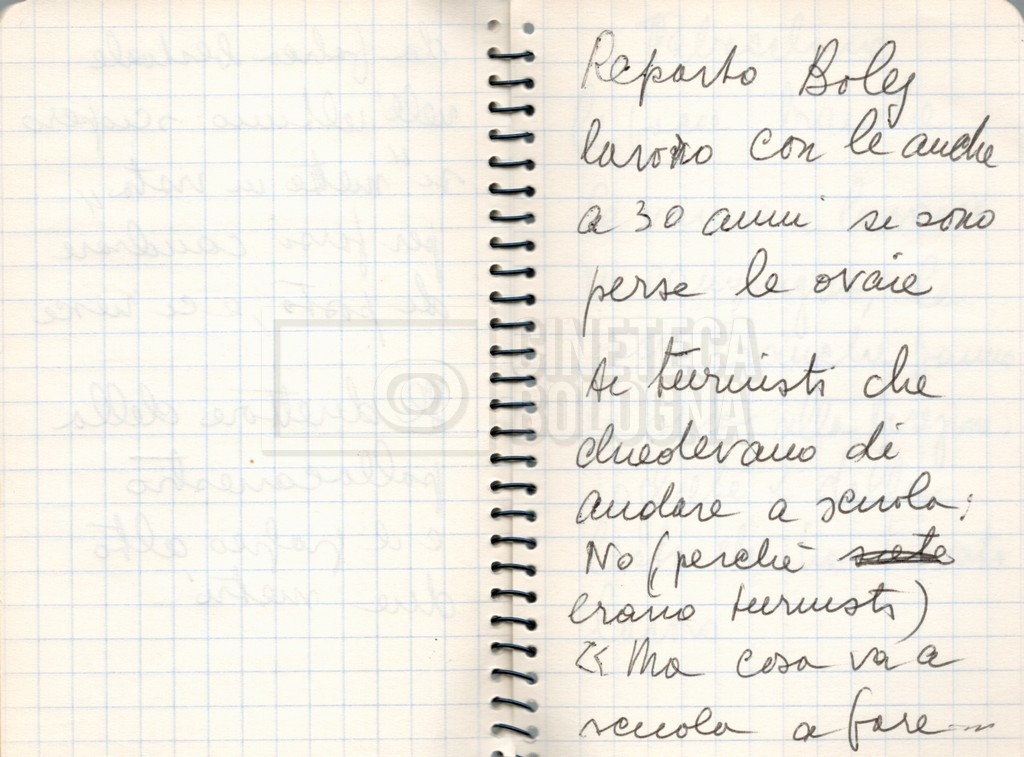 Reparto Boley
lavoro con le anche
a 30 anni si sono
perse le ovaie
Ai turnisti che
chiedevano di
andare a scuola:
No (perché siete
erano turnisti)
« Ma cosa va a
scuola a fare...
CINETECA
BOLOGNA